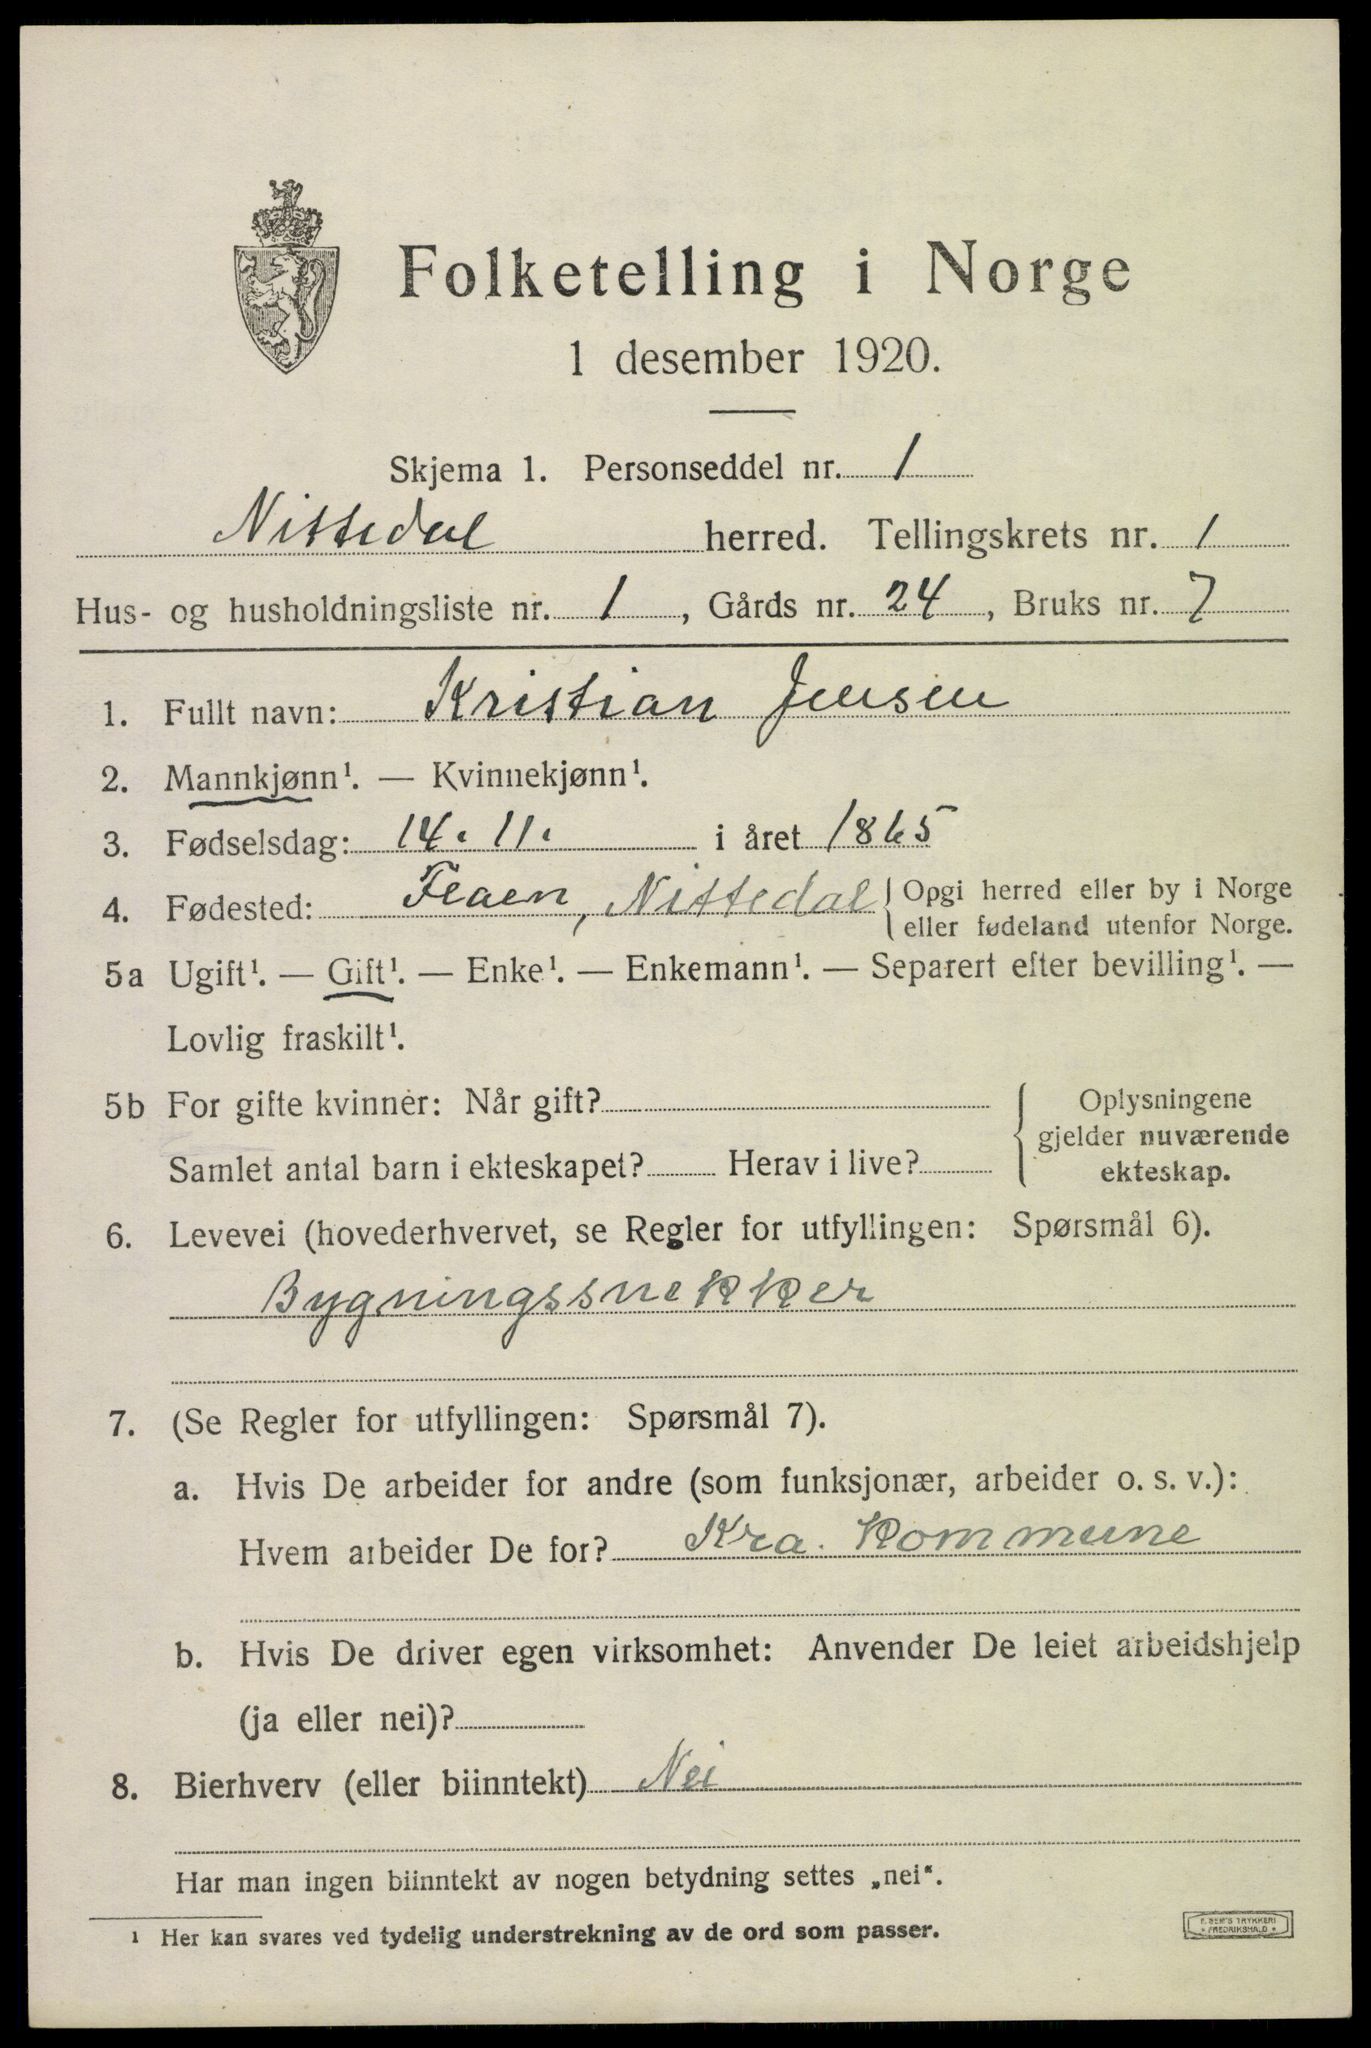 Folketelling i Norge
1 desember 1920.
Skjema 1. Personseddel nr. 1
Nittedal herred. Tellingskrets nr. 1
Hus- og husholdningsliste nr. 1, Gårds nr. 24, Bruks nr. 7
1. Fullt navn: Kristian Jensen
2. Mannkjønn¹. — Kvinnekjønn¹.
3. Fødselsdag: 14. 11. i året 1865
4. Fødested: Flaen, Nittedal { Opgi herred eller by i Norge
eller fødeland utenfor Norge.
5a Ugift¹. — Gift¹. — Enke¹. — Enkemann¹. — Separert efter bevilling¹. —
Lovlig fraskilt¹.
5b For gifte kvinner: Når gift?
Samlet antal barn i ekteskapet? Herav i live?
Oplysningene
gjelder nuværende
ekteskap.
6. Levevei (hovederhvervet, se Regler for utfyllingen: Spørsmål 6).
Bygningssnekker
7. (Se Regler for utfyllingen: Spørsmål 7).
a. Hvis De arbeider for andre (som funksjonær, arbeider o. s. v.):
Hvem arbeider De for? Kra. Kommune
b. Hvis De driver egen virksomhet: Anvender De leiet arbeidshjelp
(ja eller nei)?
8. Bierhverv (eller biinntekt) Nei
Har man ingen biinntekt av nogen betydning settes „nei“.
¹ Her kan svares ved tydelig understrekning av de ord som passer.
F. SEIR'S TRYKKERI
• FREDRIKSHALD •